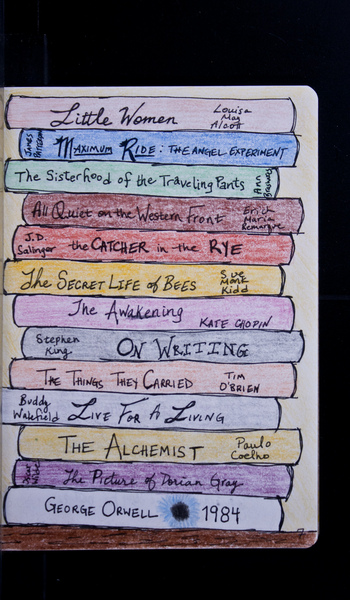 Little Women Louisa May Alcott
James Patterson Maximum Ride: The Angel Experiment
The Sisterhood of the Traveling Pants Ann Brashares
All Quiet on the Western Front Erich Maria Remarque
J.D. Salinger the CATCHER in the RYE
The SECRET LIFE of BEES Sue Monk Kidd
The Awakening KATE CHOPIN
Stephen King ON WRITING
THE THINGS THEY CARRIED TIM O'BRIEN
Buddy Wakefield LIVE FOR A LIVING
THE ALCHEMIST Paulo Coelho
The Picture of Dorian Gray
GEORGE ORWELL 1984